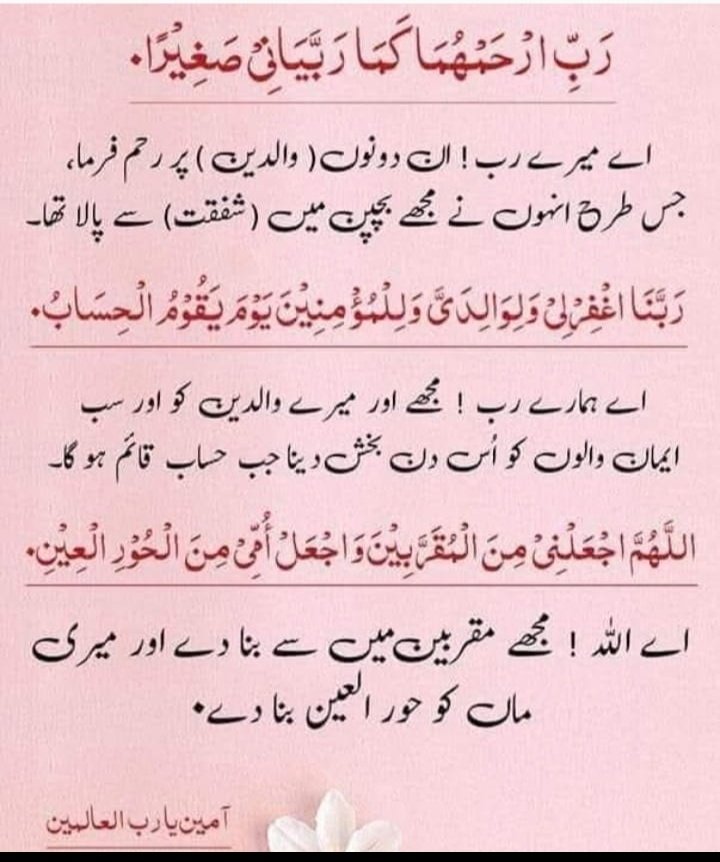 رَبِّ ارْحَمْهُمَا كَمَا رَبَّيَانِيْ صَغِيْرًا۰
اے میرے رب! ان دونوں (والدین) پر رحم فرما،
جس طرح انہوں نے مجھے بچپن میں (شفقت) سے پالا تھا۔
رَبَّنَا اغْفِرْلِيْ وَلِوَالِدَيَّ وَلِلْمُؤْمِنِيْنَ يَوْمَ يَقُوْمُ الْحِسَابُ۰
اے ہمارے رب! مجھے اور میرے والدین کو اور سب
ایمان والوں کو اُس دن بخش دینا جب حساب قائم ہو گا۔
اللَّهُمَّ اجْعَلْنِيْ مِنَ الْمُقَرَّبِيْنَ وَاجْعَلْ أُمِّيْ مِنَ الْحُوْرِ الْعِيْنِ۰
اے اللہ! مجھے مقربین میں سے بنا دے اور میری
ماں کو حور العین بنا دے۰
آمین یا رب العالمین